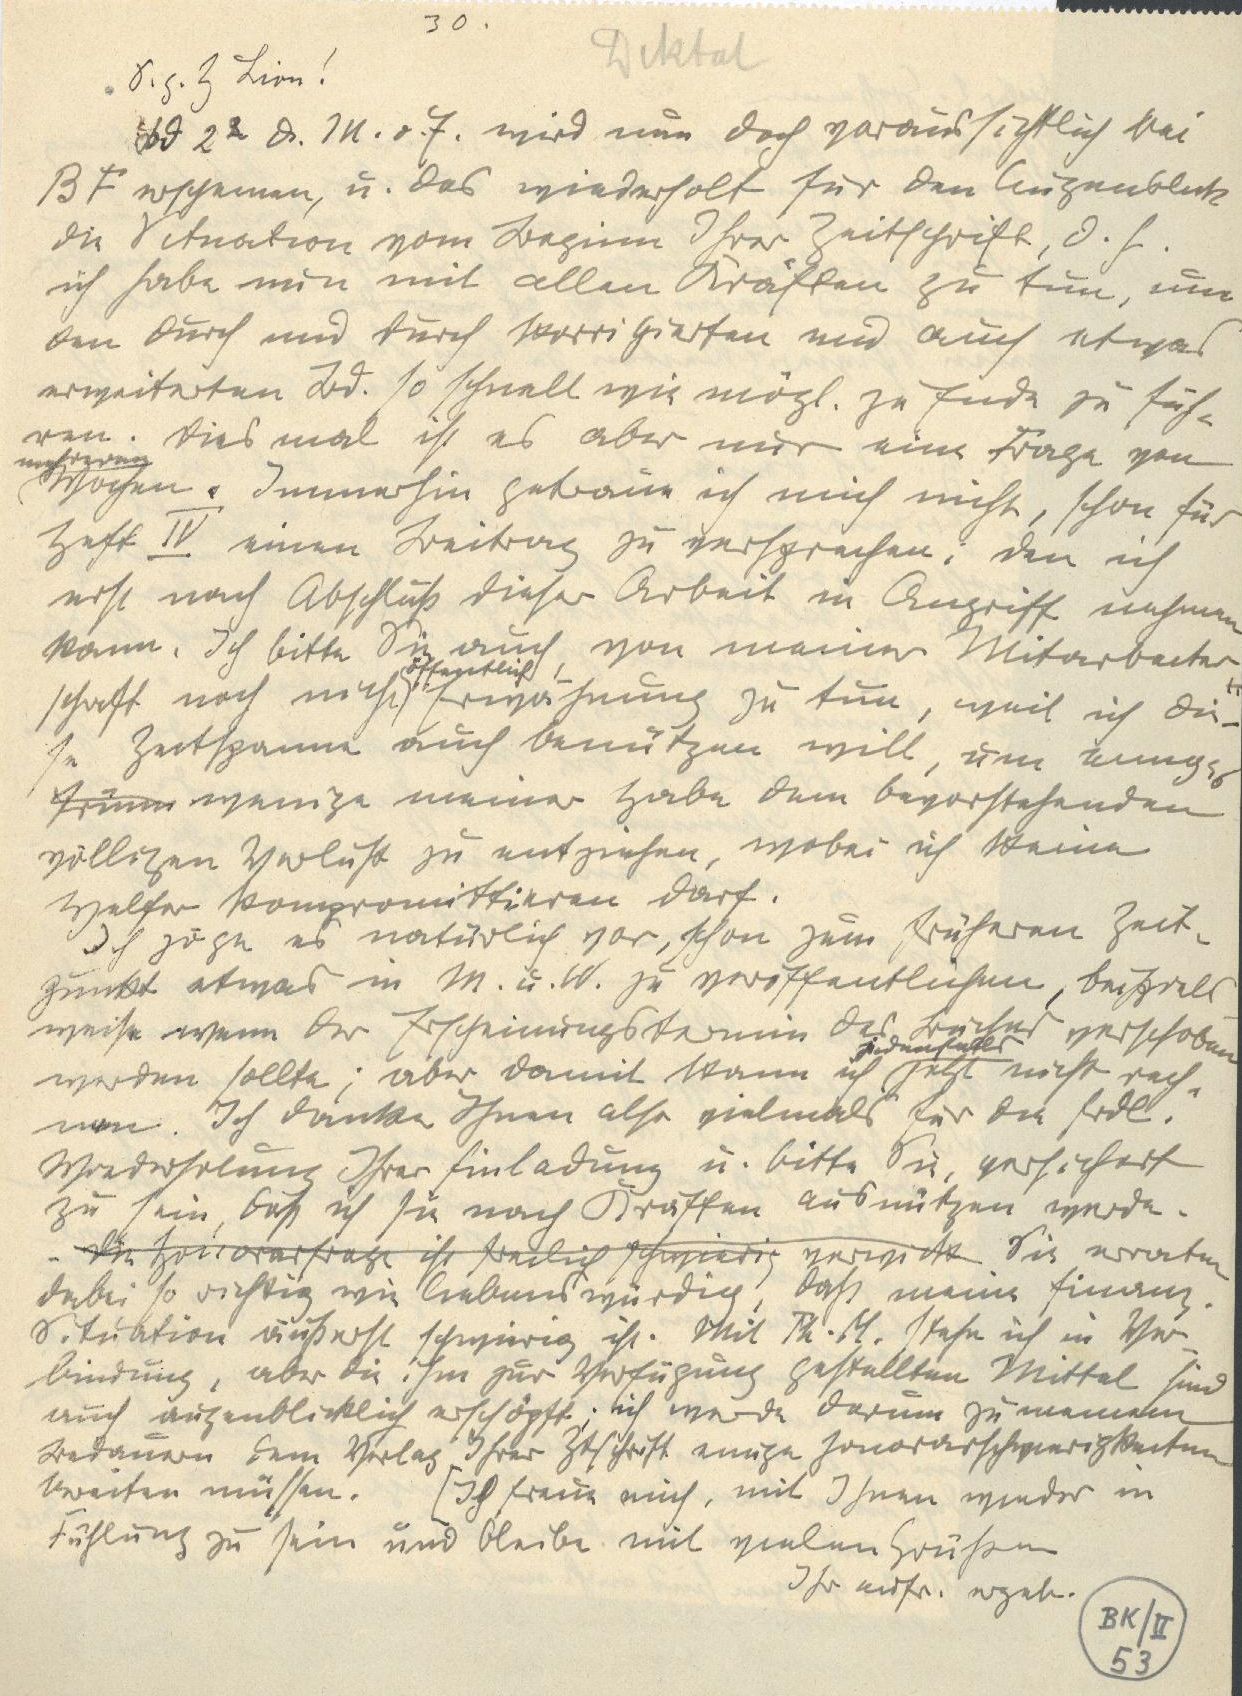 30.
Diktat
S. g. H Lion!
Bd 2 d. M. o. E. wird nun doch voraussichtlich bei
BF erscheinen, u. das wiederholt für den Augenblick
die Situation vom Beginn Ihrer Zeitschrift, d. h.
ich habe nun mit allen Kräften zu tun, um
den durch und durch korrigierten und auch etwas
erweiterten Bd. so schnell wie mögl. zu Ende zu füh-
ren. Diesmal ist es aber nur eine Frage von
mehreren
Wochen. Immerhin getraue ich mich nicht, schon für
Heft IV einen Beitrag zu versprechen; den ich
erst nach Abschluß dieser Arbeit in Angriff nehmen
kann. Ich bitte Sie auch, von meiner Mitarbeiter-
öffentlich
schaft noch nicht Erwähnung zu tun, weil ich die-
se Zeitspanne auch benützen will, um einiges
wenige meiner Habe dem bevorstehenden
völligen Verlust zu entziehen, wobei ich keine
Helfer kompromittieren darf.
Ich zöge es natürlich vor, schon zum früheren Zeit-
punkt etwas in M. u. W. zu veröffentlichen, beispiels
weise wenn der Erscheinungstermin des Buches verschoben
jedenfalls
werden sollte; aber damit kann ich jetzt nicht rech-
nen. Ich danke Ihnen also vielmals für die frdl.
Wiederholung Ihrer Einladung u. bitte Sie, versichert
zu sein, daß ich sie nach Kräften ausnützen werde.
- Die Honorarfrage ist freilich schwierig verwickt Sie erraten
dabei so richtig wie liebenswürdig, daß meine finanz.
Situation äußerst schwierig ist. Mit Th. M. stehe ich in Ver-
bindung, aber die ihm zur Verfügung gestellten Mittel sind
auch augenblicklich erschöpft; ich werde darum zu meinem
Bedauern dem Verlag Ihrer Ztschrift einige Honorarschwierigkeiten
bereiten müssen. [Ich freue mich, mit Ihnen wieder in
Fühlung zu sein und bleibe mit vielen Grüßen
Ihr aufr. ergeb.
BK/II
53